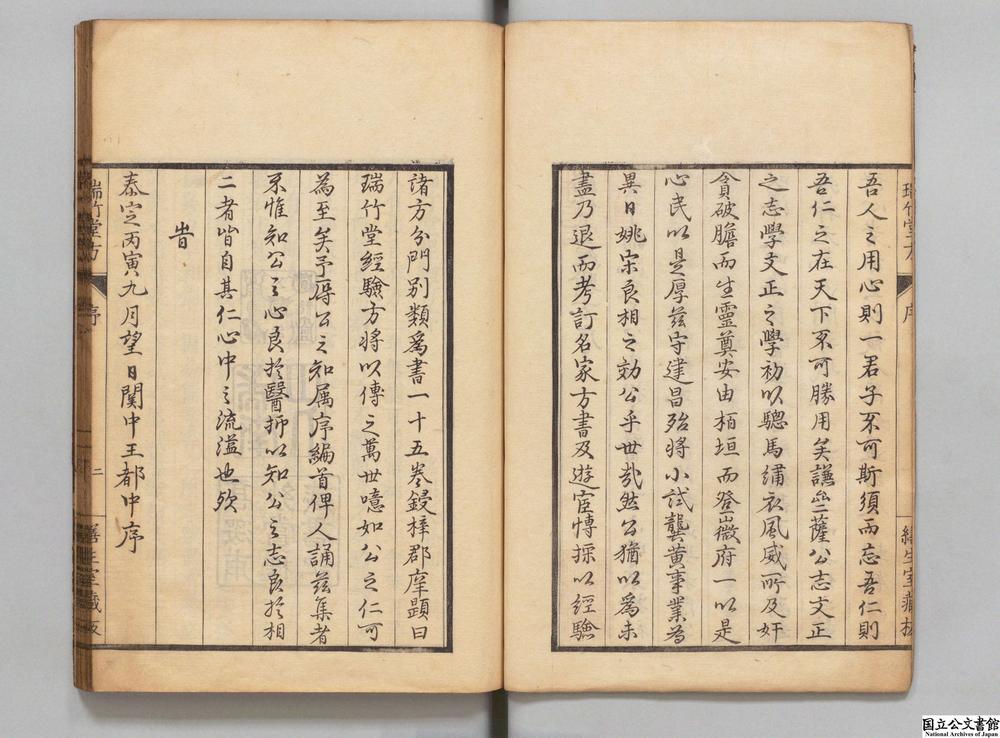 瑞竹堂方 序 繕生室藏板
吾人之用心則一君子不可斯須而忘吾仁則
吾仁之在天下不可勝用矣謙齋薩公志文正
之志學文正之學初以驄馬繡衣風威所及奸
貪破膽而生靈奠安由栢垣而登薇府一以是
心民以是厚茲守建昌殆將小試龔黃事業為
異日姚宋良相之効公乎世哉然公猶以為未
盡乃退而考訂名家方書及遊宦博採以經驗
諸方分門別類為書一十五卷鋟梓郡庠題曰
瑞竹堂經驗方將以傳之萬世噫如公之仁可
為至矣予辱公之知属序編首俾人誦茲集者
不惟知公之心良於醫抑以知公之志良於相
二者皆自其仁心中之流溢也欤
旹
泰定丙寅九月望日関中王都中序
瑞竹堂方 序 二 繕生室藏板
国立公文書館
National Archives of Japan